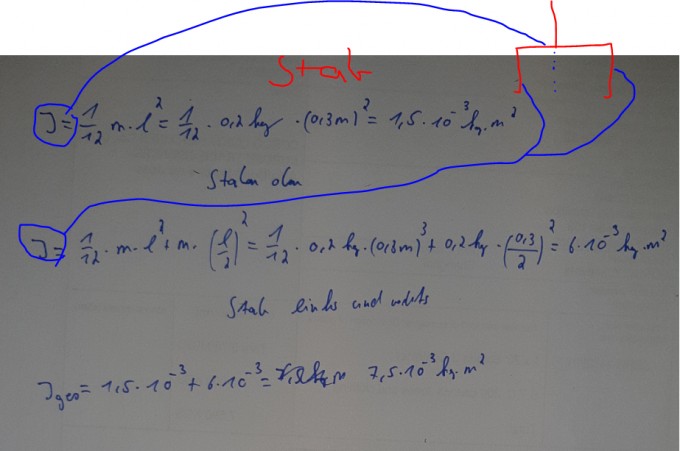 Stab
J = 1/12 m · l² = 1/12 · 0,2 kg · (0,3m)² = 1,5 · 10⁻³ kg · m²
Stab oben
J = 1/12 · m · l² + m · (l/2)² = 1/12 · 0,2 kg · (0,3m)³ + 0,2 kg · (0,3/2)² = 6 · 10⁻³ kg · m²
Stab links und rechts
J ges = 1,5 · 10⁻³ + 6 · 10⁻³ = 7,5 · 10⁻³ kg · m²